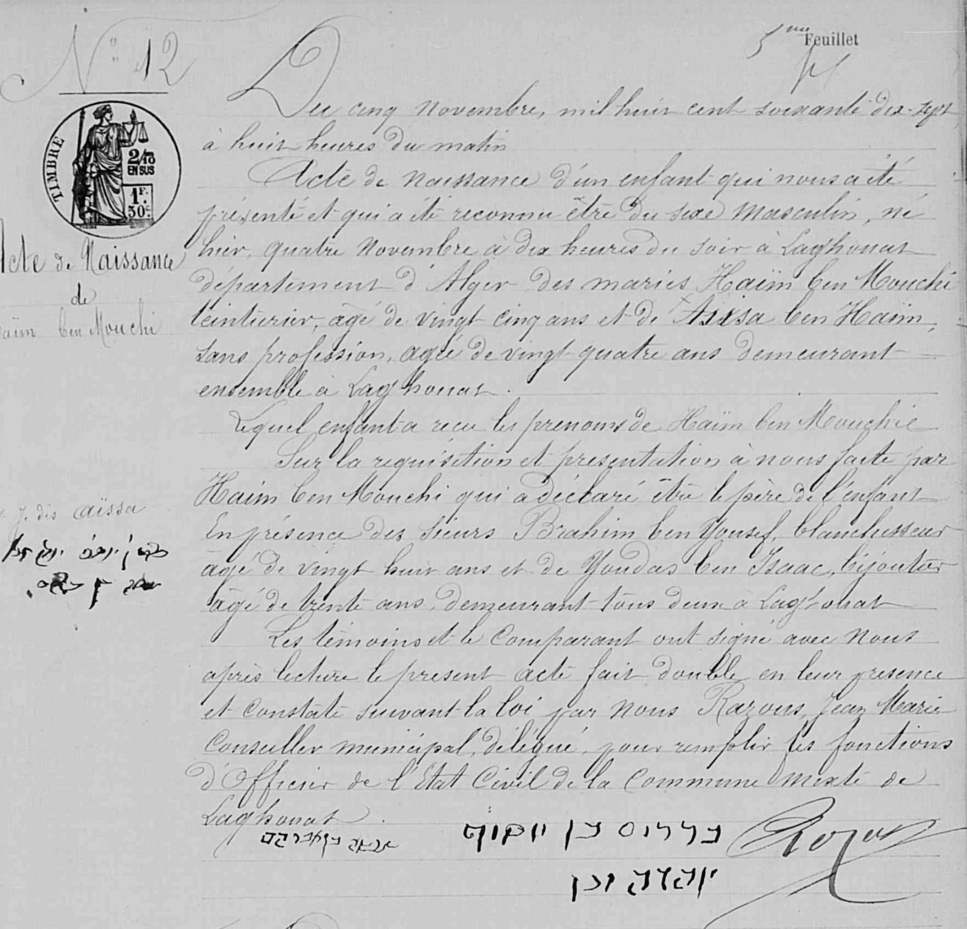 N° 12
5me Feuillet
TIMBRE
2/10
EN SUS
1F.
50c.
Acte de Naissance
de
Haïm ben Mouchi
Du cinq Novembre, mil huit cent soixante dix-sept
à huit heures du matin
Acte de Naissance d'un enfant qui nous a été
présenté et qui a été reconnu être du sexe Masculin, né
hier, quatre Novembre à dix heures du soir à Laghouat
département d'Alger des mariés Haïm ben Mouchi
teinturier, âgé de vingt cinq ans et de Aïssa ben Haïm,
sans profession, agée de vingt quatre ans demeurant
ensemble à Laghouat.
Lequel enfant a recu les prenoms de Haïm ben Mouchie
Sur la requisition et presentation à nous faite par
Haïm ben Mouchi qui a déclaré être le père de l'enfant
En présence des sieurs Brahim ben Yousef, blanchisseur
âgé de vingt huit ans et de Youdas ben Isaac, bijoutier
âgé de trente ans, demeurant tous deux à Laghouat
Les témoins et le Comparant ont signé avec Nous
après lecture le present acte fait double en leur presence
et Constaté suivant la loi par Nous Razous, Jean Marie
Conseiller municipal, délégué, pour remplir les fonctions
d'Officier de l'Etat Civil de la Commune mixte de
Laghouat.
J. dis aïssa
בן יוסף
יהודה